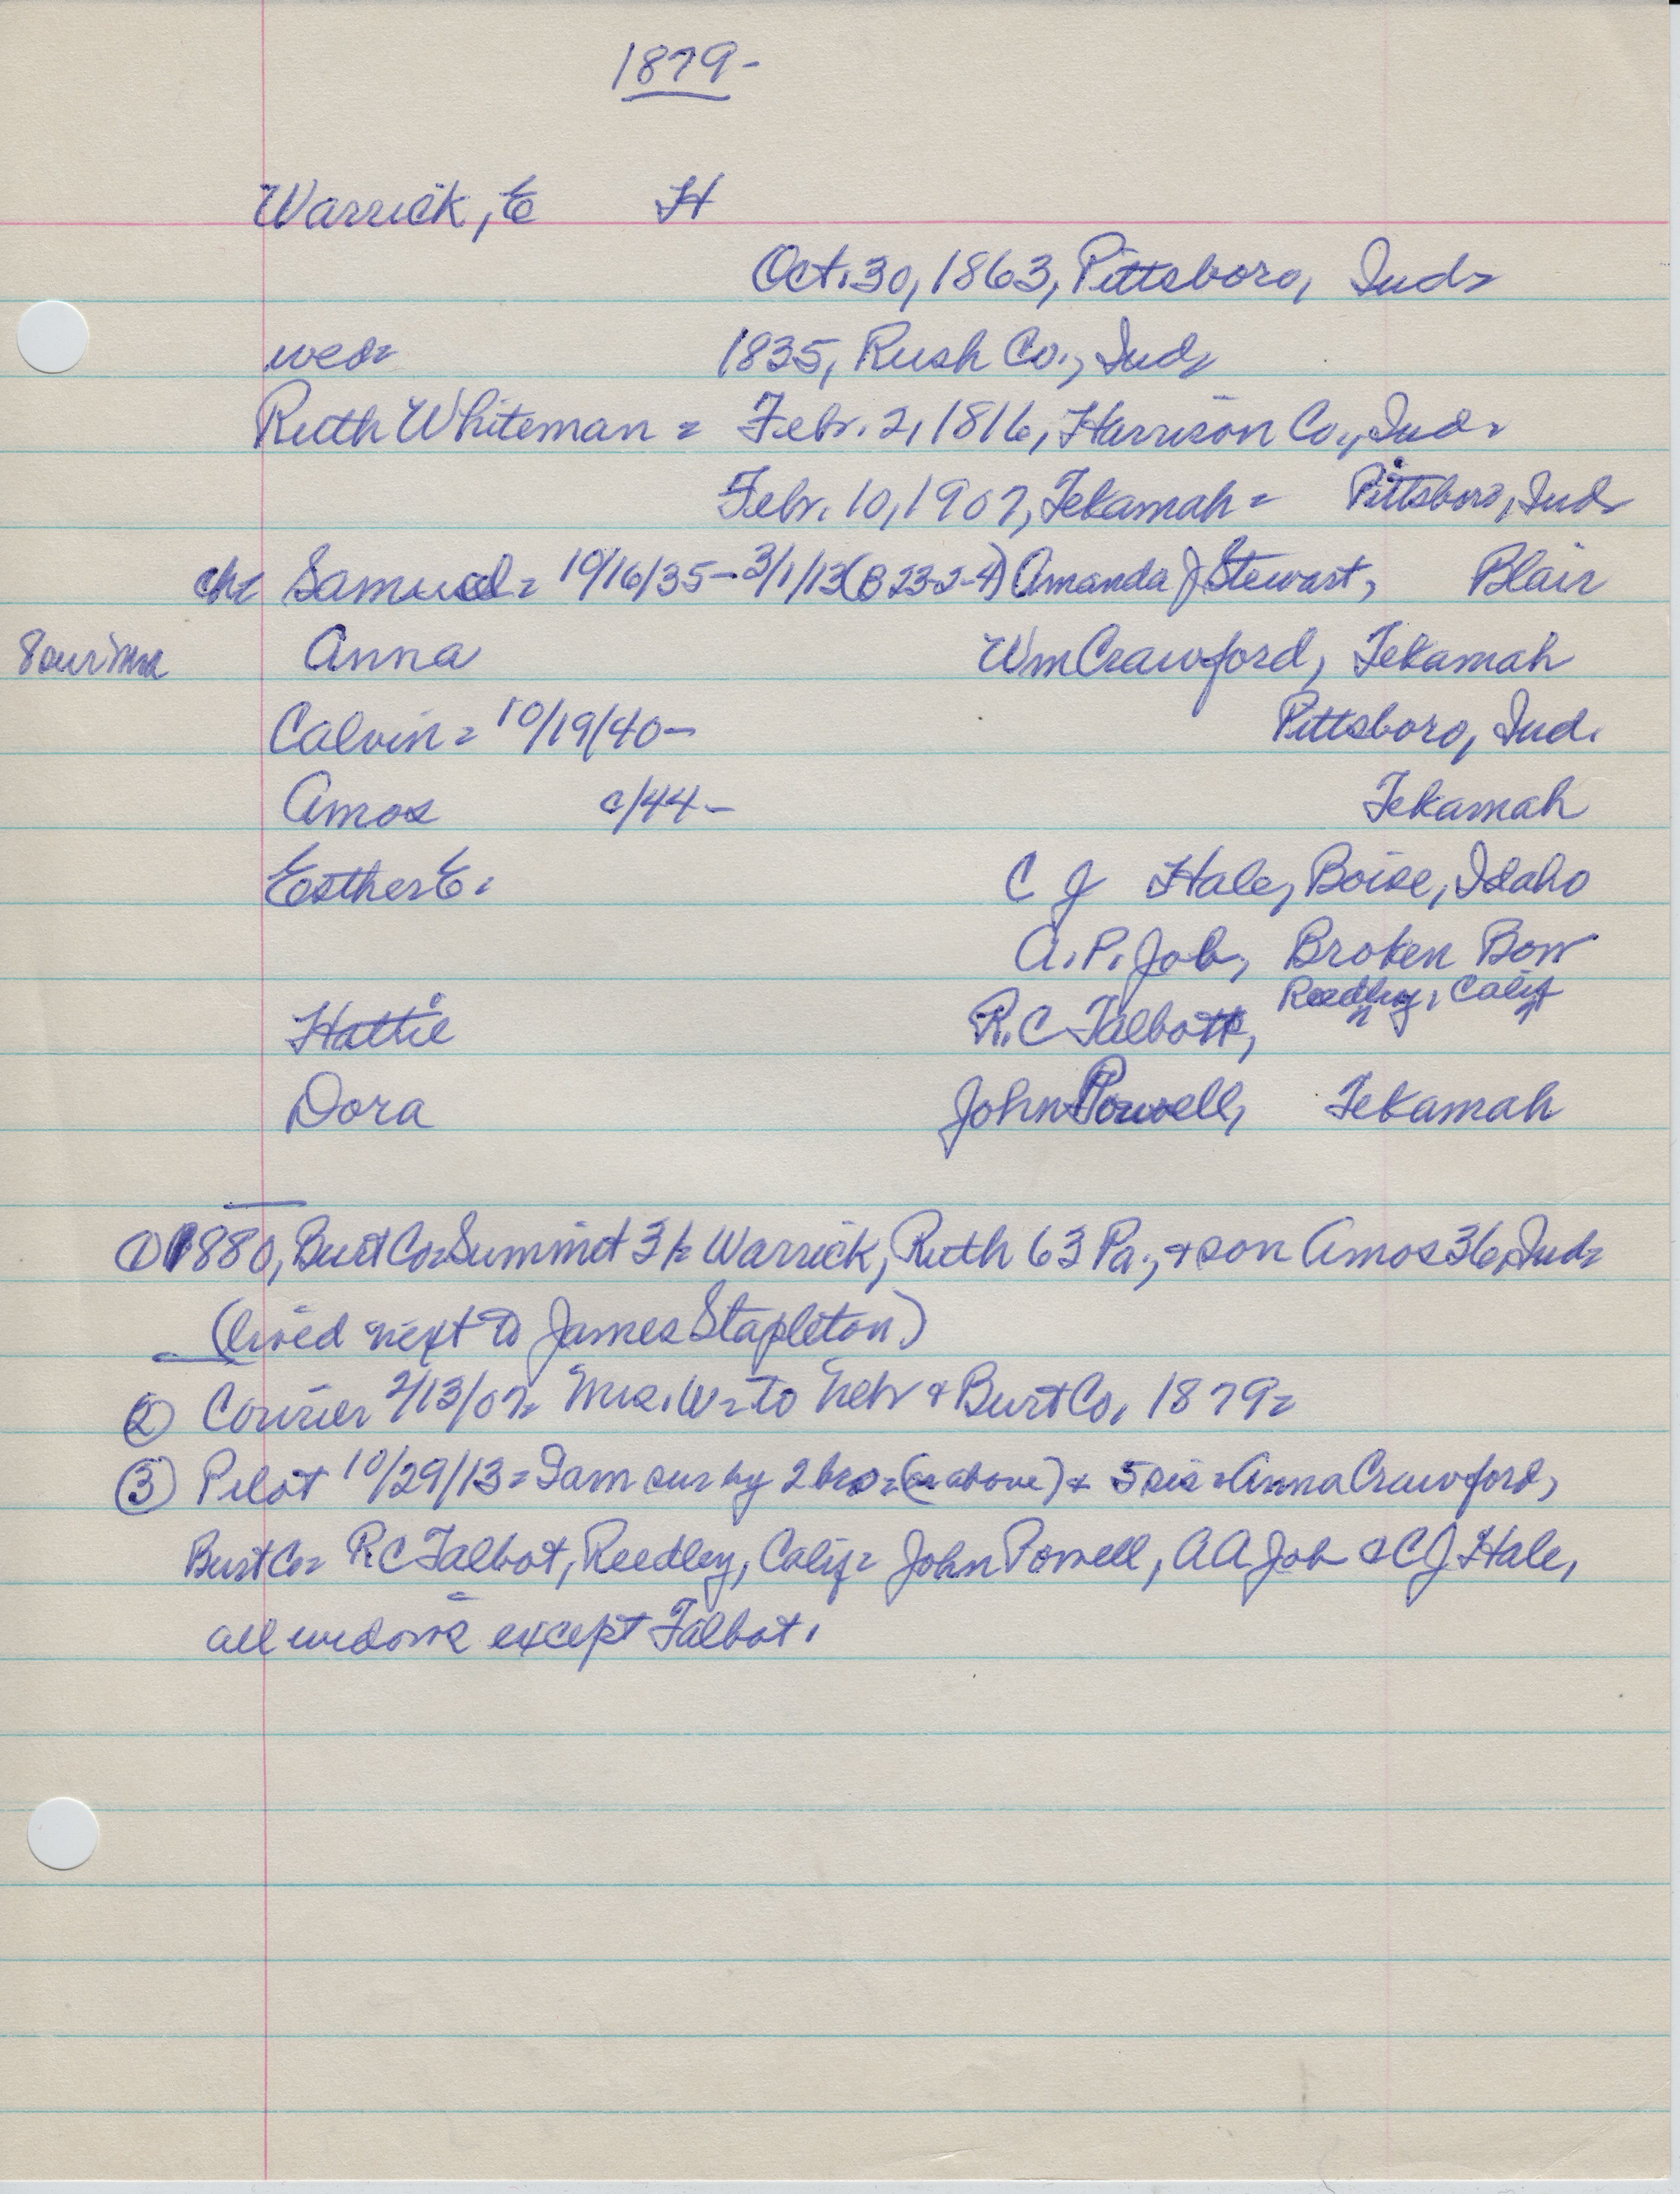 1879-
Warrick, E H
Oct. 30, 1863, Pittsboro, Ind=
wed= 1835, Rush Co., Ind=
Ruth Whiteman = Febr. 2, 1816, Harrison Co., Ind.
Febr. 10, 1907, Tekamah = Pittsboro, Ind
ch= Samuel = 10/16/35 - 3/1/13 (B 23-2-4) Amanda J Stewart, Blair
8 sur Anna Wm Crawford, Tekamah
Calvin = 10/19/40- Pittsboro, Ind.
Amos c/44- Tekamah
Esther E. C J Hale, Boise, Idaho
A. P. Job, Broken Bow
Hattie R. C Talbott, Reedley, Calif
Dora John Powell, Tekamah
① 1880, Burt Co= Summit 3/= Warrick, Ruth 63 Pa., + son Amos 36, Ind=
(lived next to James Stapleton)
② Courier 2/13/07= Mrs. W = to Nebr + Burt Co, 1879=
③ Pilot 10/29/13 = Sam sur by 2 bro = (as above) + 5 sis = Anna Crawford,
Burt Co= R C Talbot, Reedley, Calif= John Powell, A A Job & C J Hale,
all widows except Talbot.